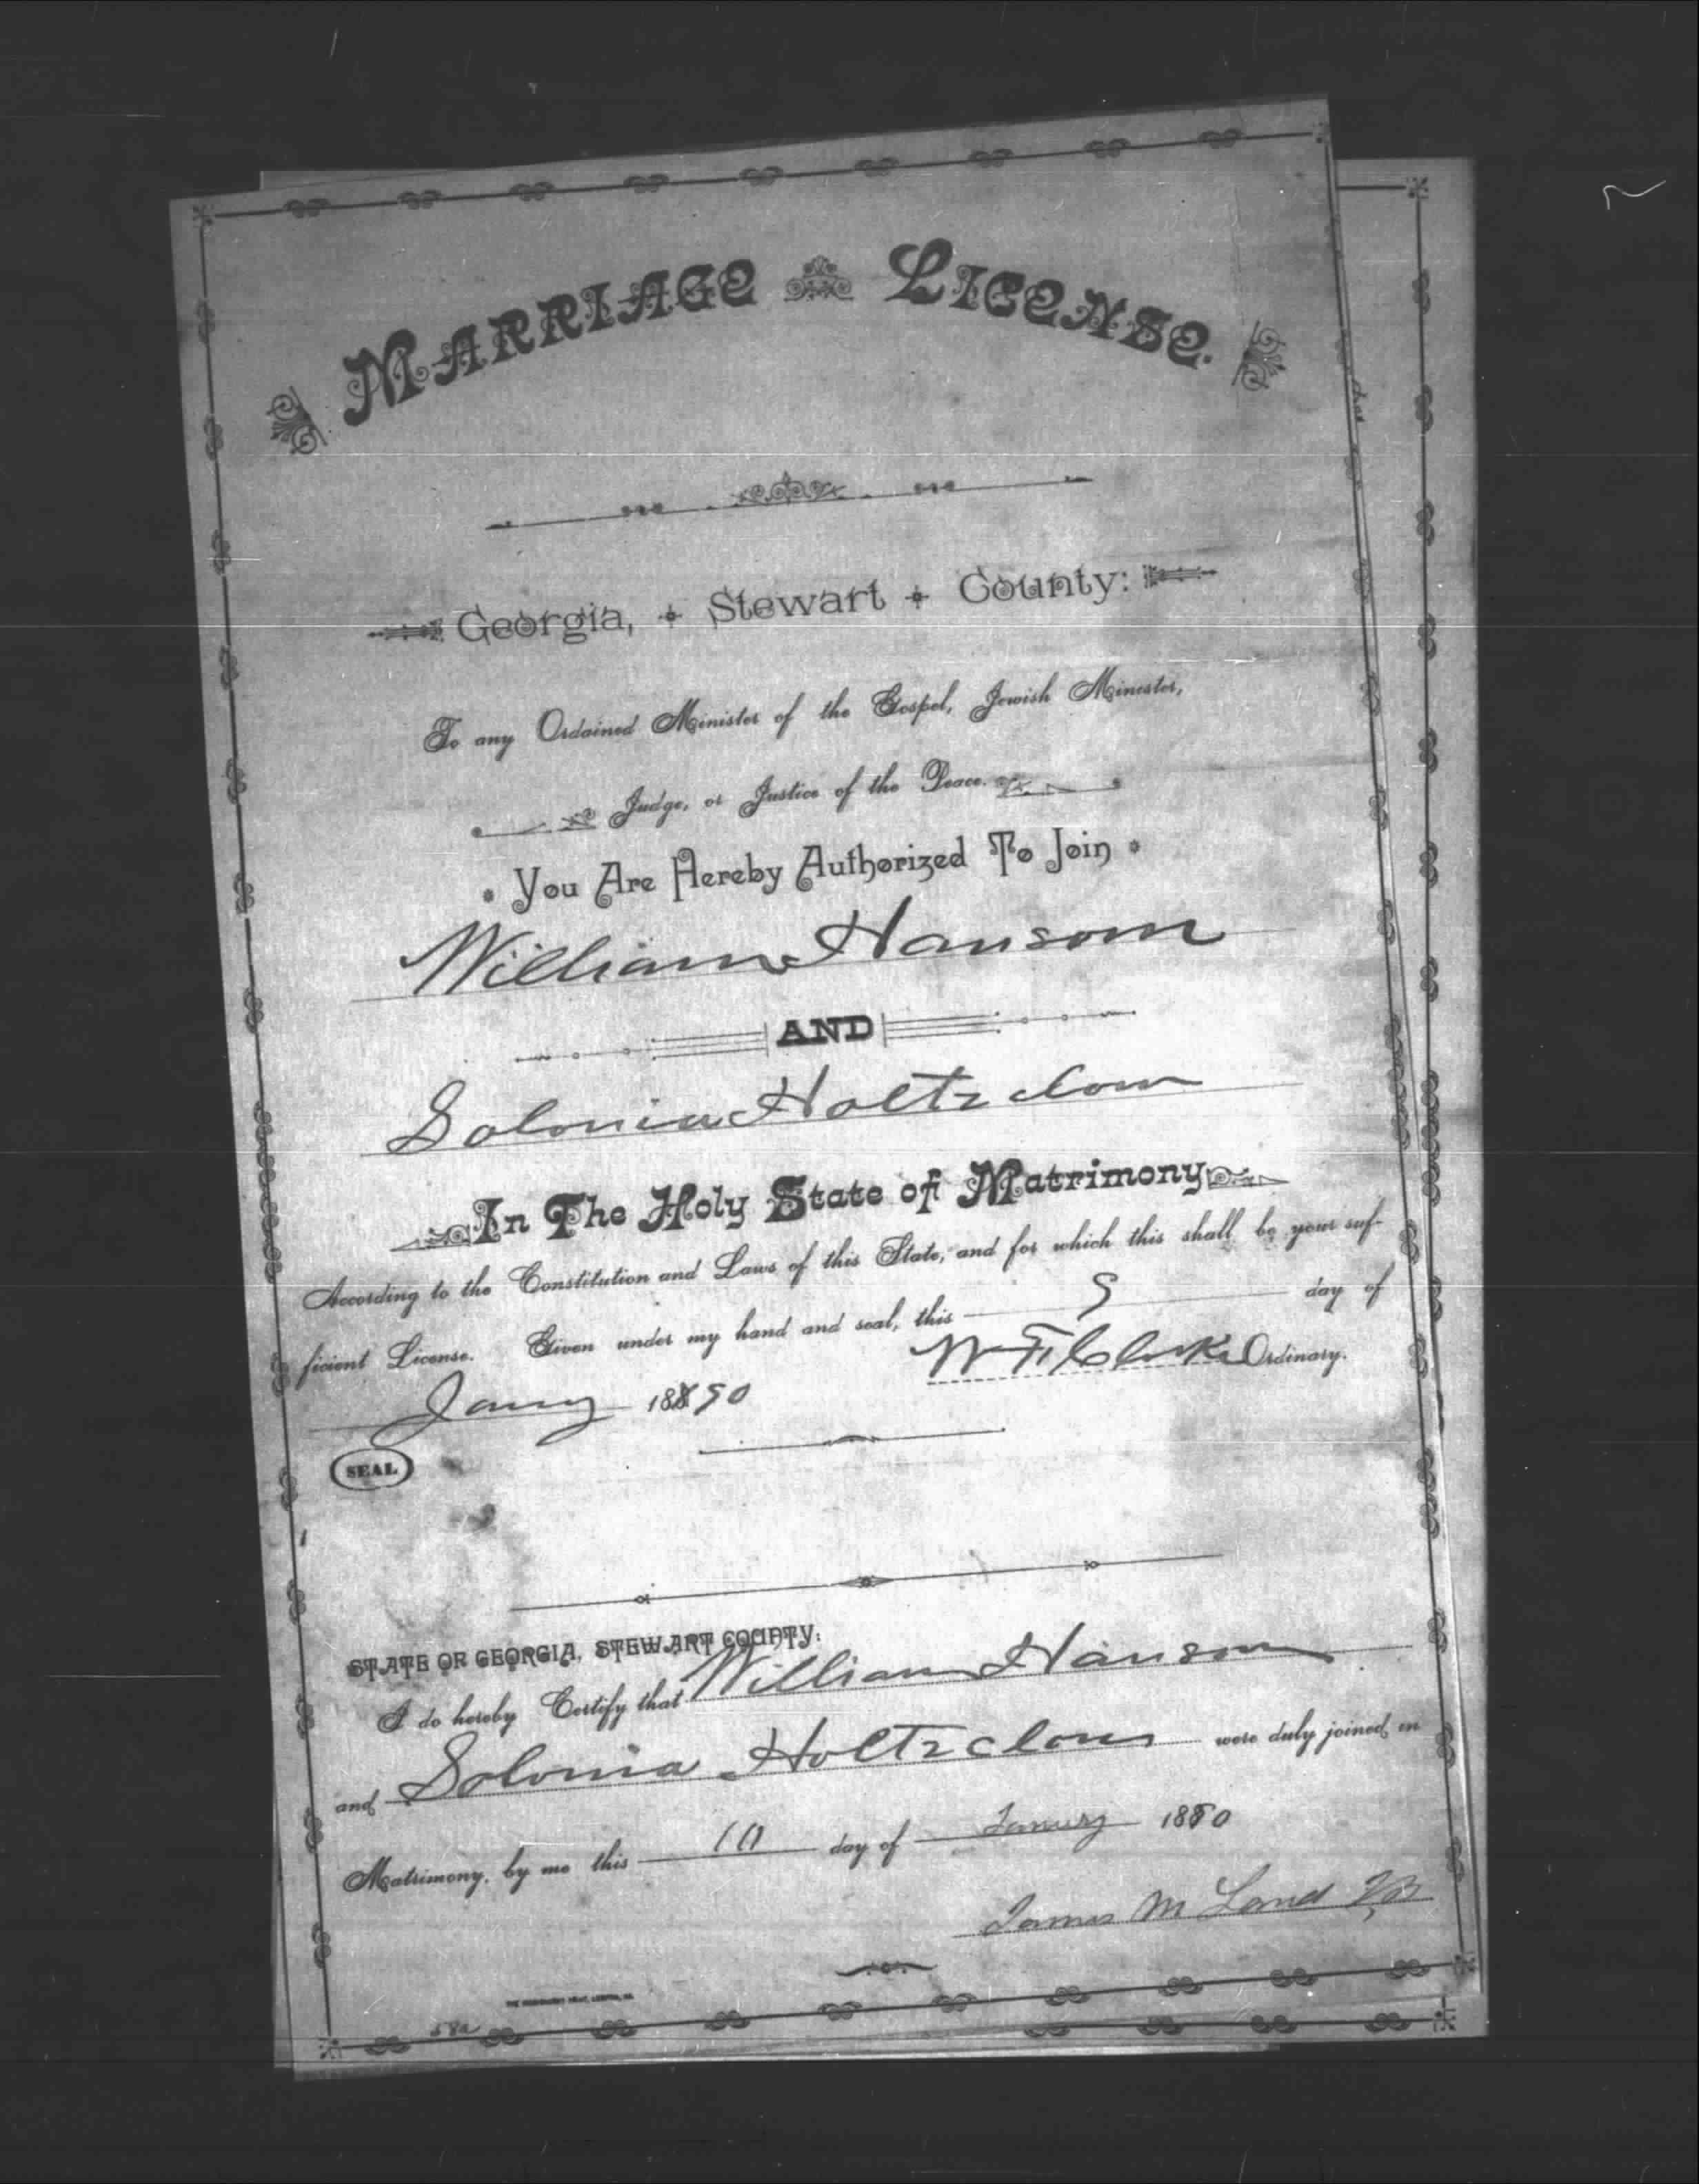 MARRIAGE LICENSE.
Georgia, Stewart County:
To any Ordained Minister of the Gospel, Jewish Minister,
Judge, or Justice of the Peace.
You Are Hereby Authorized To Join
William Hansom
AND
Solonia Holtzclaw
In The Holy State of Matrimony
According to the Constitution and Laws of this State, and for which this shall be your suf-
ficient License. Given under my hand and seal, this 9 day of
Jany 1890 W F Clarke Ordinary.
SEAL
STATE OF GEORGIA, STEWART COUNTY:
I do hereby Certify that William Hansom
and Solonia Holtzclaw were duly joined in
Matrimony, by me this 10 day of January 1880
James M Land